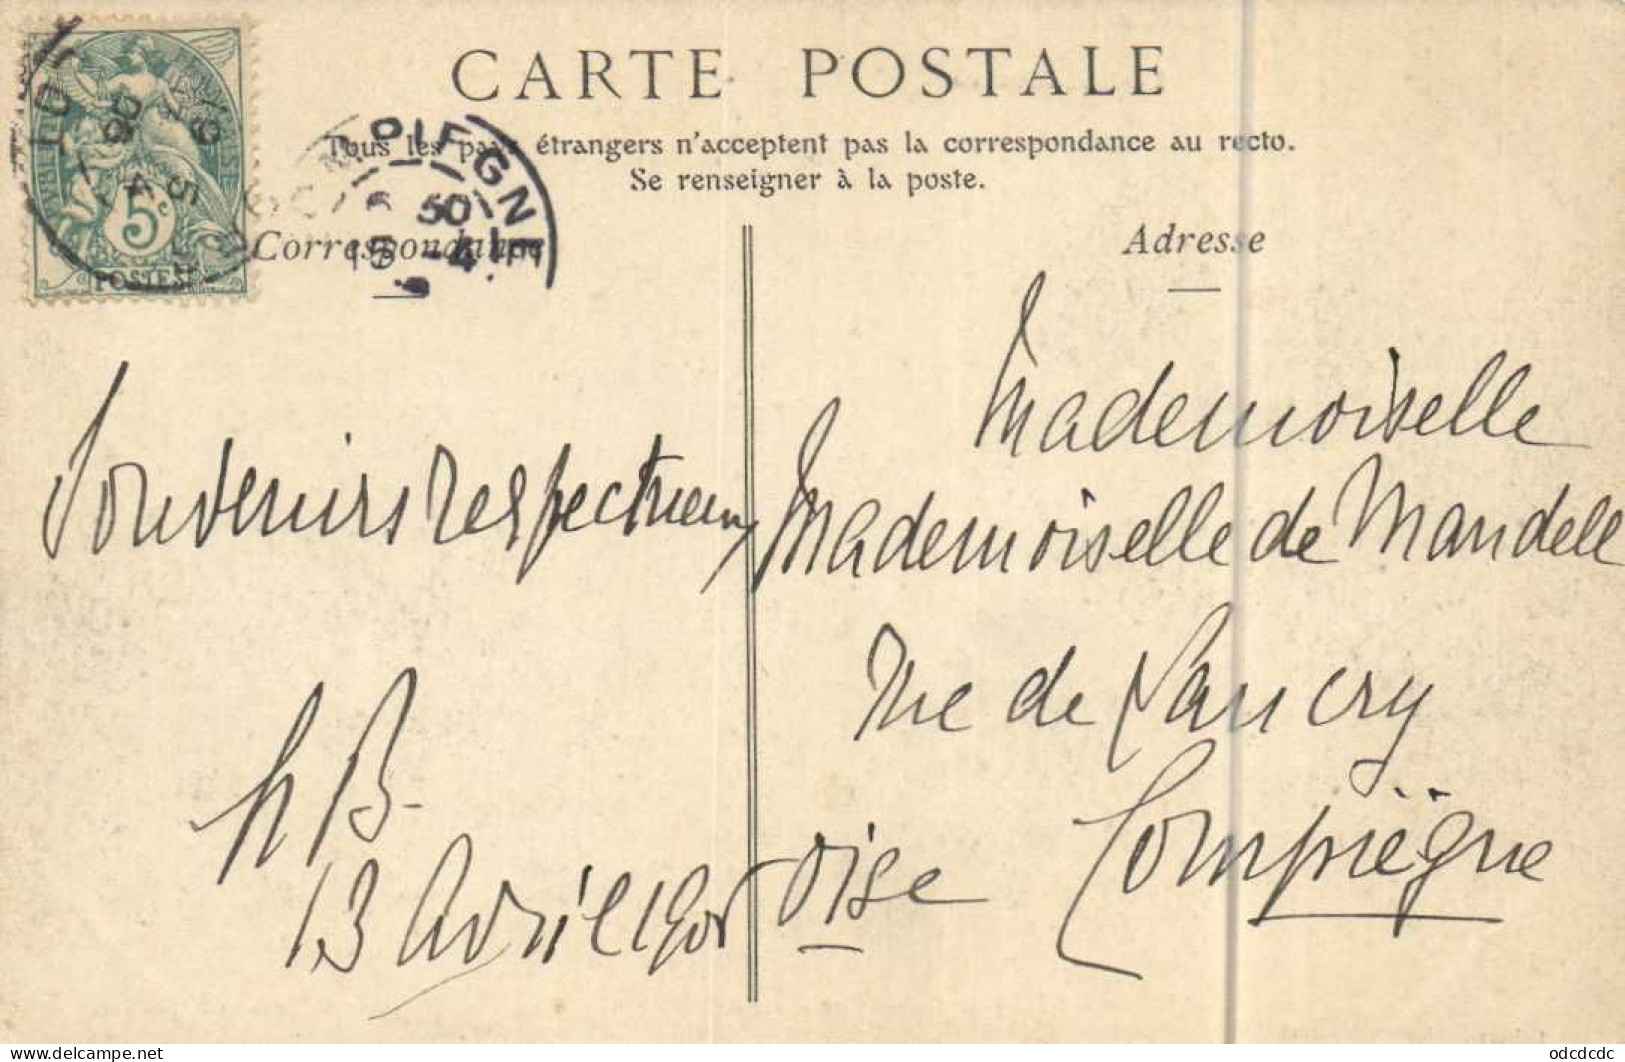 CARTE POSTALE
Tous les pays étrangers n'acceptent pas la correspondance au recto.
Se renseigner à la poste.
Correspondance
Adresse
5c
POSTES
COMPIEGNE
50
15 - 4
Souvenirs respectueux
h B
13 Avril 1905
Mademoiselle
Mademoiselle de Mandell
Rue de Lancry
Compiègne
Oise
odcdcdc
© delcampe.net